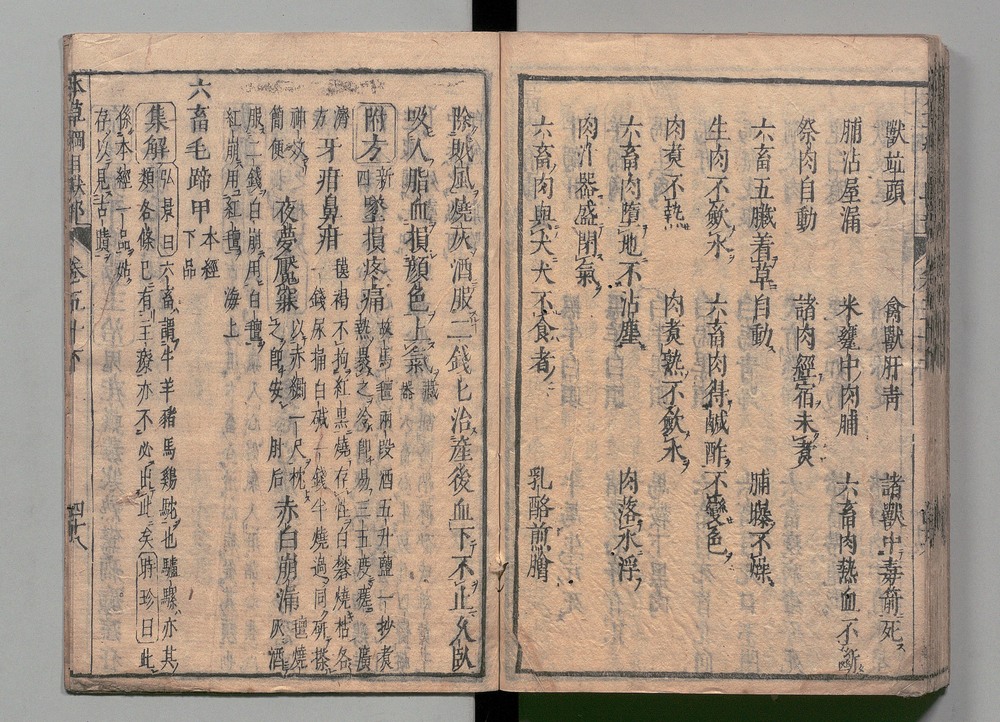 獸並頭 禽獸肝青 諸獸中毒箭死
脯沾屋漏 米甕中肉脯 六畜肉熱血不斷
祭肉自動 諸肉經宿未煮
六畜五臟着草自動 脯曝不燥
生肉不歛水 六畜肉得鹹酢不變色
肉煮不熟 肉煮熟不歛水
六畜肉墮地不沾塵 肉落水浮
肉汁器盛閉氣
六畜肉與犬犬不食者 乳酪煎膾
除賊風燒灰酒服二錢匕治産後血下不止久臥
吸人脂血損顔色上氣 藏器
附方 新四 墜損疼痛 故馬氊兩段酒五升鹽一抄煮
熱裹之冷即易三五度瘥 廣
濟方 牙疳鼻疳 氊褐不拘紅黒燒存性白礬燒枯各
一錢尿桶白碱一錢半燒過同研搽
神效 簡便 夜夢魘寐 以赤緋一尺枕
之即安 肘后 赤白崩漏 氊燒灰酒
服二錢白崩用白氊
紅崩用紅氊 海上
六畜毛蹄甲 本經下品
集解 弘景曰六畜謂牛羊猪馬鷄狗也驢騾亦其
類各條已有主療亦不必出此矣 時珍曰此
係本經一品姑
存以見古蹟
本草綱目獸部 卷五十下 四十八